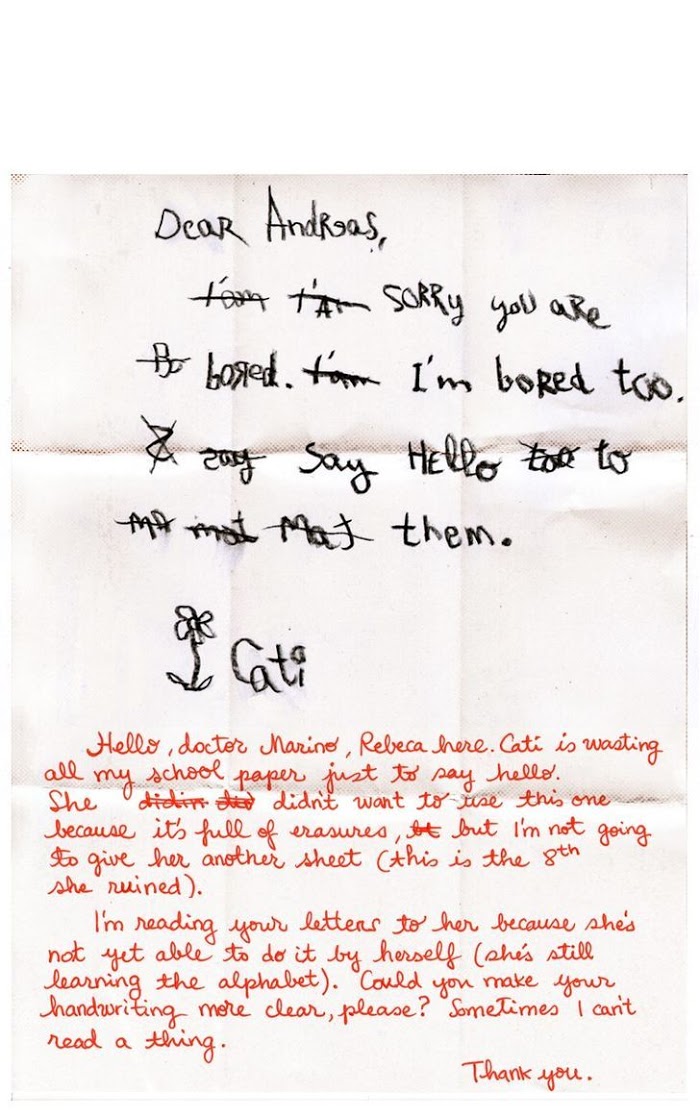 Dear Andreas,
I'am I'Am SORRy you are
Bo bored. I'am I'm boRed too.
zay Say Hello too to
MA mot Mat them.
Cati
Hello, doctor Marino, Rebeca here. Cati is wasting
all my school paper just to say hello.
She didin did didn't want to use this one
because it's full of erasures, bt but I'm not going
to give her another sheet (this is the 8th
she ruined).
I'm reading your letters to her because she's
not yet able to do it by herself (she's still
learning the alphabet). Could you make your
handwriting more clear, please? Sometimes I can't
read a thing.
Thank you.